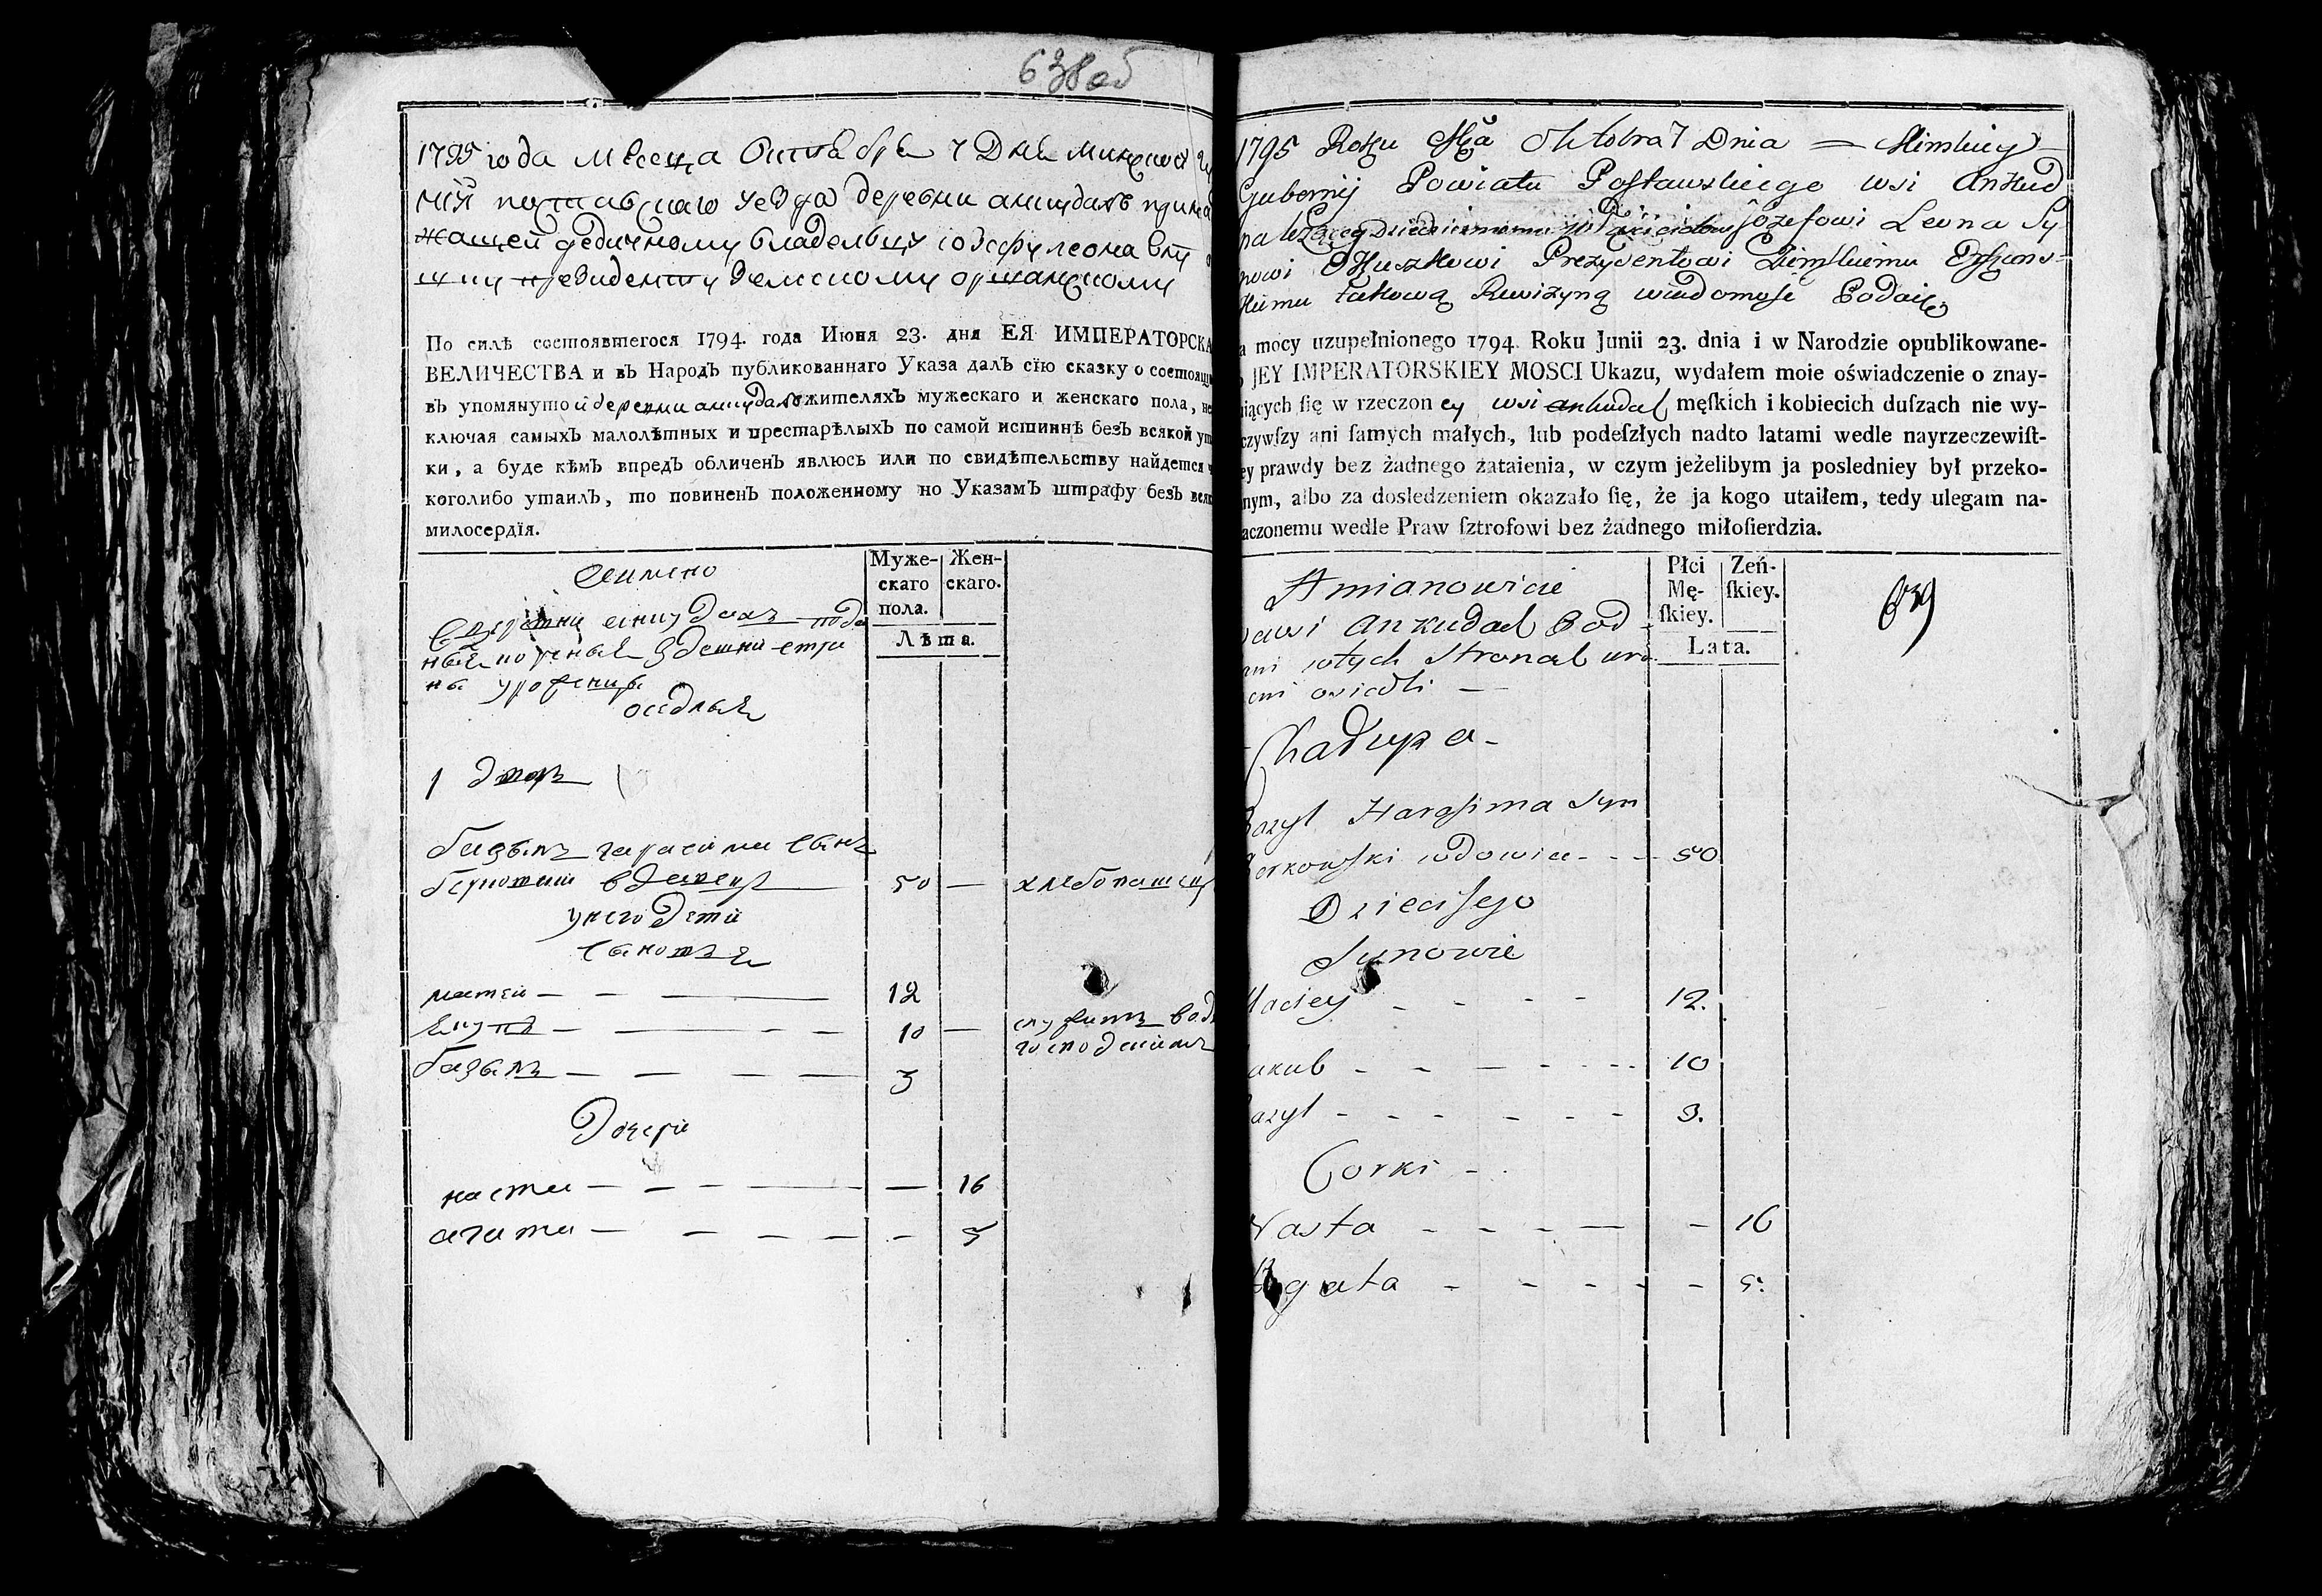 638об
1795 года месеца Октября 7 Дня минской гу
нїи поставского уезда деревни анкудавъ прина
жащей дедичному владельцу юзефу леона
президенту земскому оршанскому
По силѣ состоявшегося 1794. года Июня 23. дня ЕЯ ИМПЕРАТОРСКА
ВЕЛИЧЕСТВА и въ Народъ публикованнаго Указа далъ сїю сказку о состоящи
въ упомянутой деревни анкудахъ жителяхъ мужескаго и женскаго пола, не
ключая самыхъ малолѣтныхъ и престарѣлыхъ по самой истиннѣ безъ всякой ут
ки, а буде кѣмъ впредъ обличенъ явлюсь или по свидѣтельству найдется ч
коголибо утаилъ, то повиненъ положенному по Указамъ штрафу безъ всяк
милосердїя.
Аимено
Муже-
скаго
пола.
Жен-
скаго.
Лѣта.
деревни анкудахъ
здешни
осидлыя
1 дворъ
базылъ гарасима сынъ
вдавецъ 50 — хлебопашецъ
унего дети
сыновъя
матей — — — 12
якубъ — — — 10 — служитъ
базылъ — — — 3
Дочери
наста — — — — 16
агата — — — — 5
1795 Roku Mca Oktobra 7 Dnia — Minskiey
Gubernij Powiatu Postawskiego wsi Ankud
Józefowi Leona Sy
nowi Prezydentowi Ziemskiemu Orszans-
kiemu takową Rewizyną wiadomość Podaię
a mocy uzupełnionego 1794 Roku Junii 23. dnia i w Narodzie opublikowane-
o JEY IMPERATORSKIEY MOSCI Ukazu, wydałem moie oświadczenie o znay-
iących ſię w rzeczoney wsi ankudach męſkich i kobiecich duſzach nie wy-
czywſzy ani ſamych małych, lub podeſzłych nadto latami wedle nayrzeczewiſt-
ey prawdy bez żadnego żataienia, w czym jeżelibym ja posledniey był przeko-
nym, albo za dosledzeniem okazało ſię, że ja kogo utaiłem, tedy ulegam na-
aczonemu wedle Praw ſztrofowi bez żadnego miłoſierdzia.
Amianowicie
Płci
Mę-
ſkiey.
Zeń-
ſkiey.
Lata.
639
Ankudach Pod
tych Stronach uro
osiedli —
Chałupa -
azyl Harasima Syn
erkowski wdowiec - - - 50
Dzieci Jego
Synowie
Maciey - - - - 12.
akub - - - - - 10
azyl - - - - - 3.
Corki -
Nasta - - - - - 16
Agata - - - - - 5.